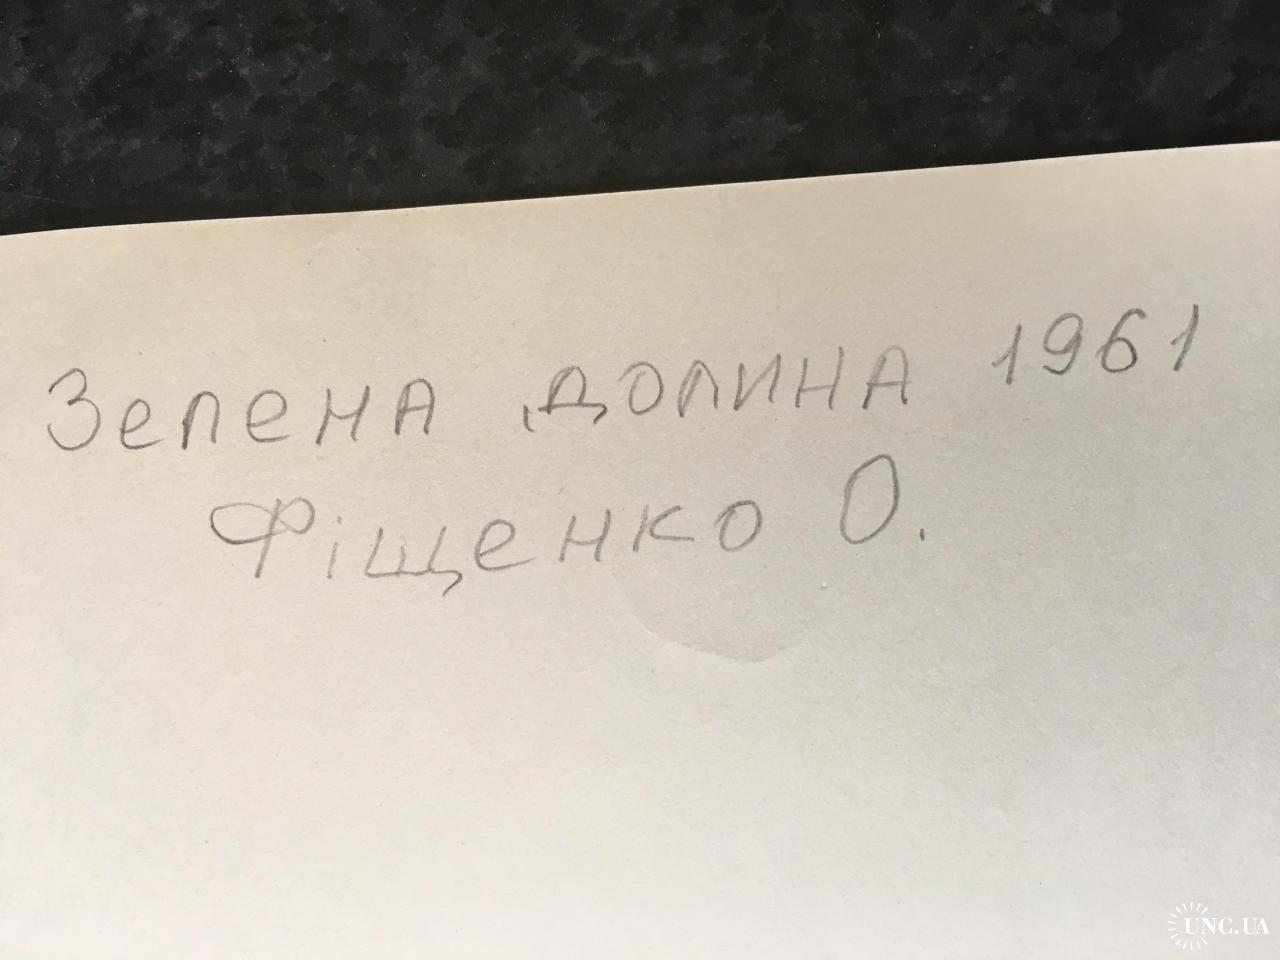 Зелена долина 1961
Фіщенко О.
UNC.UA